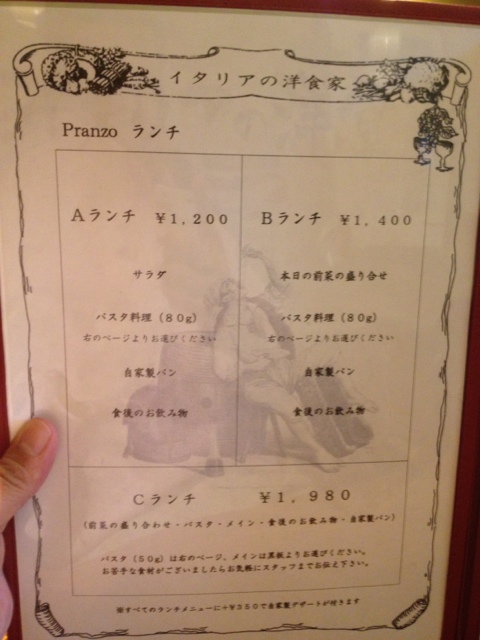 イタリアの洋食家
Pranzo ランチ
Aランチ ¥1,200
サラダ
パスタ料理(80g)
右のページよりお選びください
自家製パン
食後のお飲み物
Bランチ ¥1,400
本日の前菜の盛り合せ
パスタ料理(80g)
右のページよりお選びください
自家製パン
食後のお飲み物
Cランチ ¥1,980
(前菜の盛り合わせ・パスタ・メイン・食後のお飲み物・自家製パン)
パスタ(50g)は右のページ、メインは黒板よりお選びください。
お苦手な食材がございましたらお気軽にスタッフまでお伝え下さい。
※すべてのランチメニューに+¥350で自家製デザートが付きます